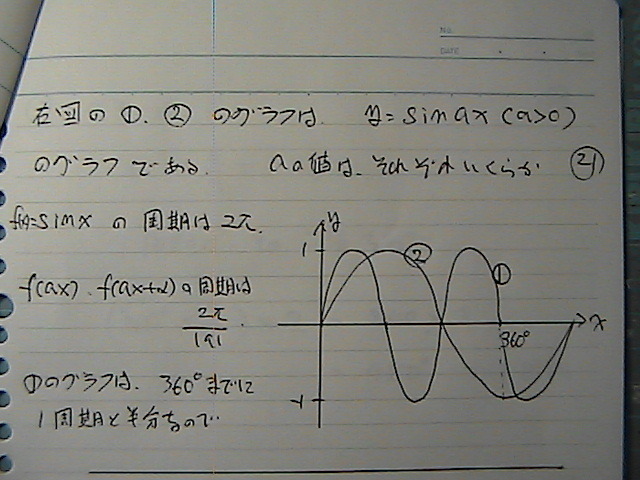 No.
DATE
右図の ①、② のグラフは、 y=sin ax (a>0)
のグラフである。 aの値は、それぞれいくらか ㉑
f(x)=sin x の周期は 2π.
f(ax)、f(ax+α)の周期は
2π
|a|
①のグラフは、360°までに
1周期と半分ちので…
y
1
②
①
x
360°
-1